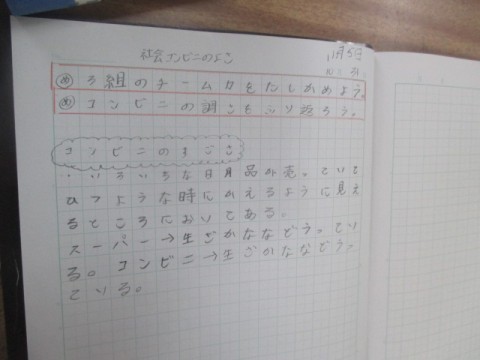 社会コンビニのよこ
11月5日
No. 31.
め 3組のチーム力をたしかめよう。
め コンビニの調こをふり返ろう。
コンビニのすごこ
・いろいろな日用品が売っていて
ひつような時にかえるように見え
るところにおいてある。
スーパー→生ざかななどう。てい
る。コンビニ→生ざかななどう。
ている。